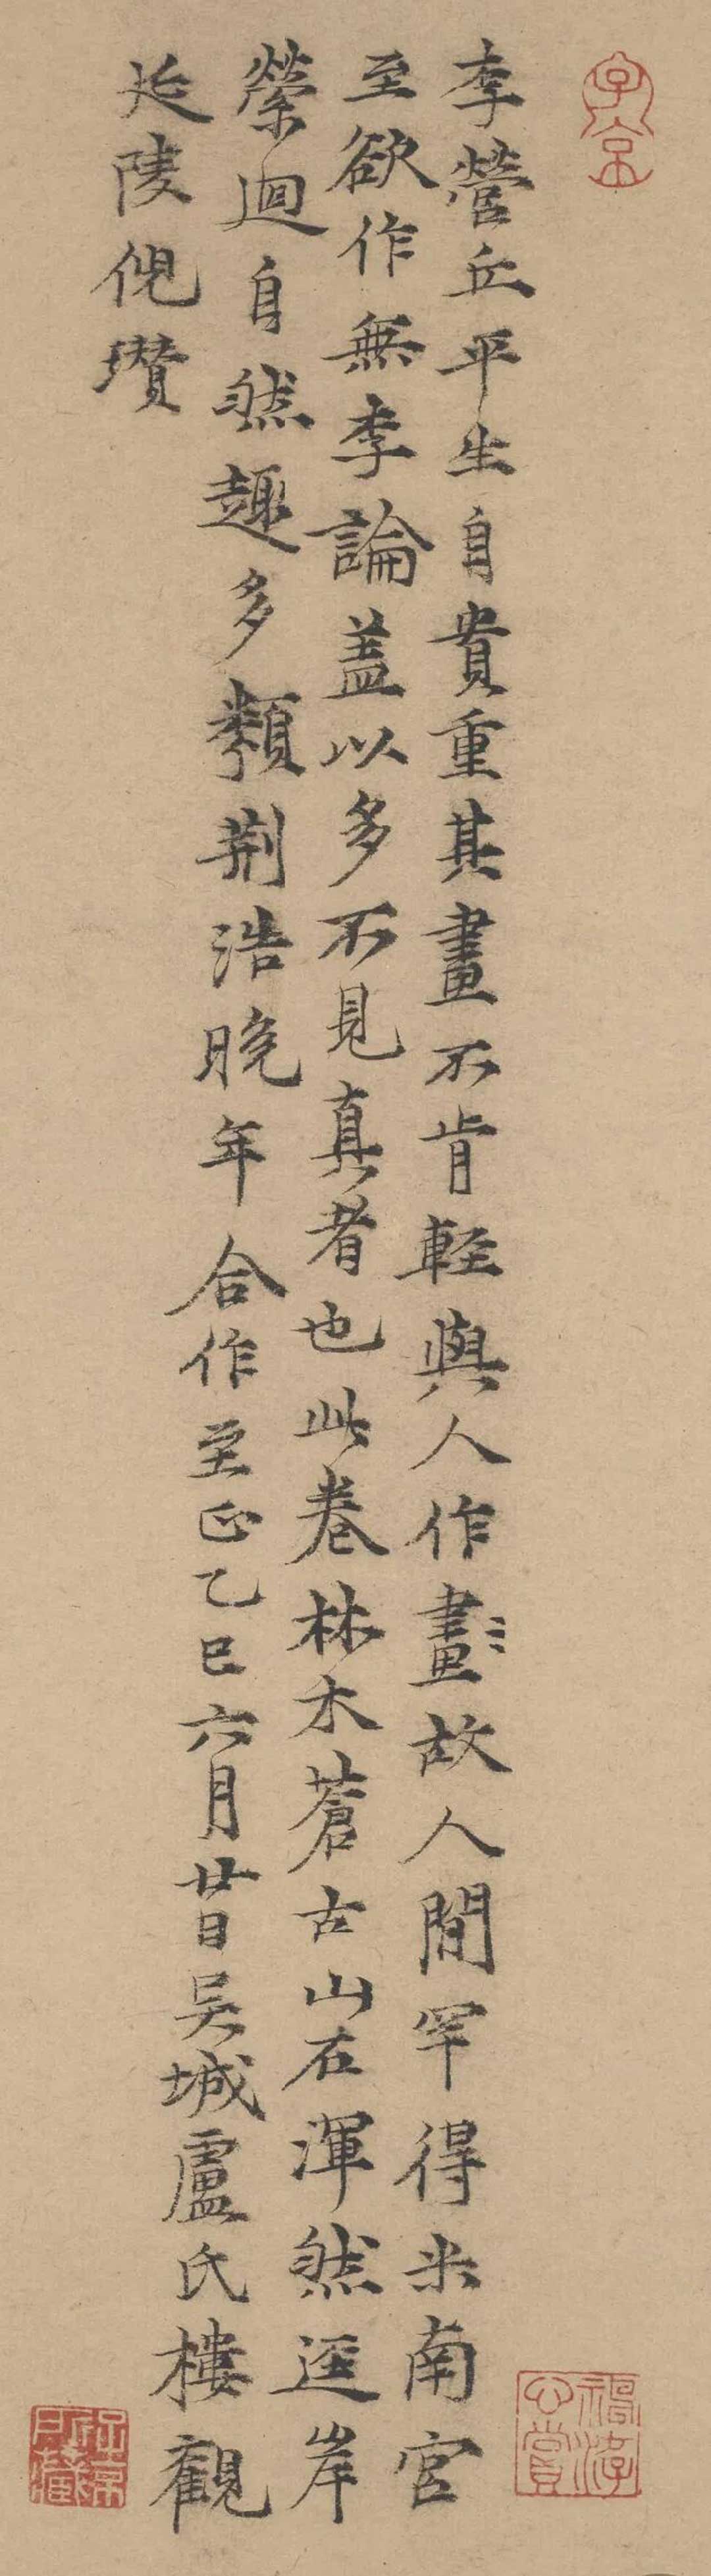 子京
李營丘平生自貴重其畫不肯輕與人作畫故人間罕得米南宮
至欲作無李論盖以多不見真者也此卷林木蒼古山石渾然逕岸
縈迴自然趣多類荆浩晚年合作至正乙巳六月廿日吴城盧氏樓觀
延陵倪瓚
神游心賞